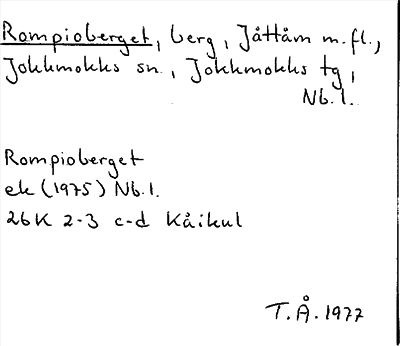 Rompioberget, berg, Jåttåm m.fl.,
Jokkmokks sn., Jokkmokks tg,
Nb.l.
Rompioberget
ek (1975) Nb.l.
26K 2-3 c-d Kåikul
T.Å. 1977